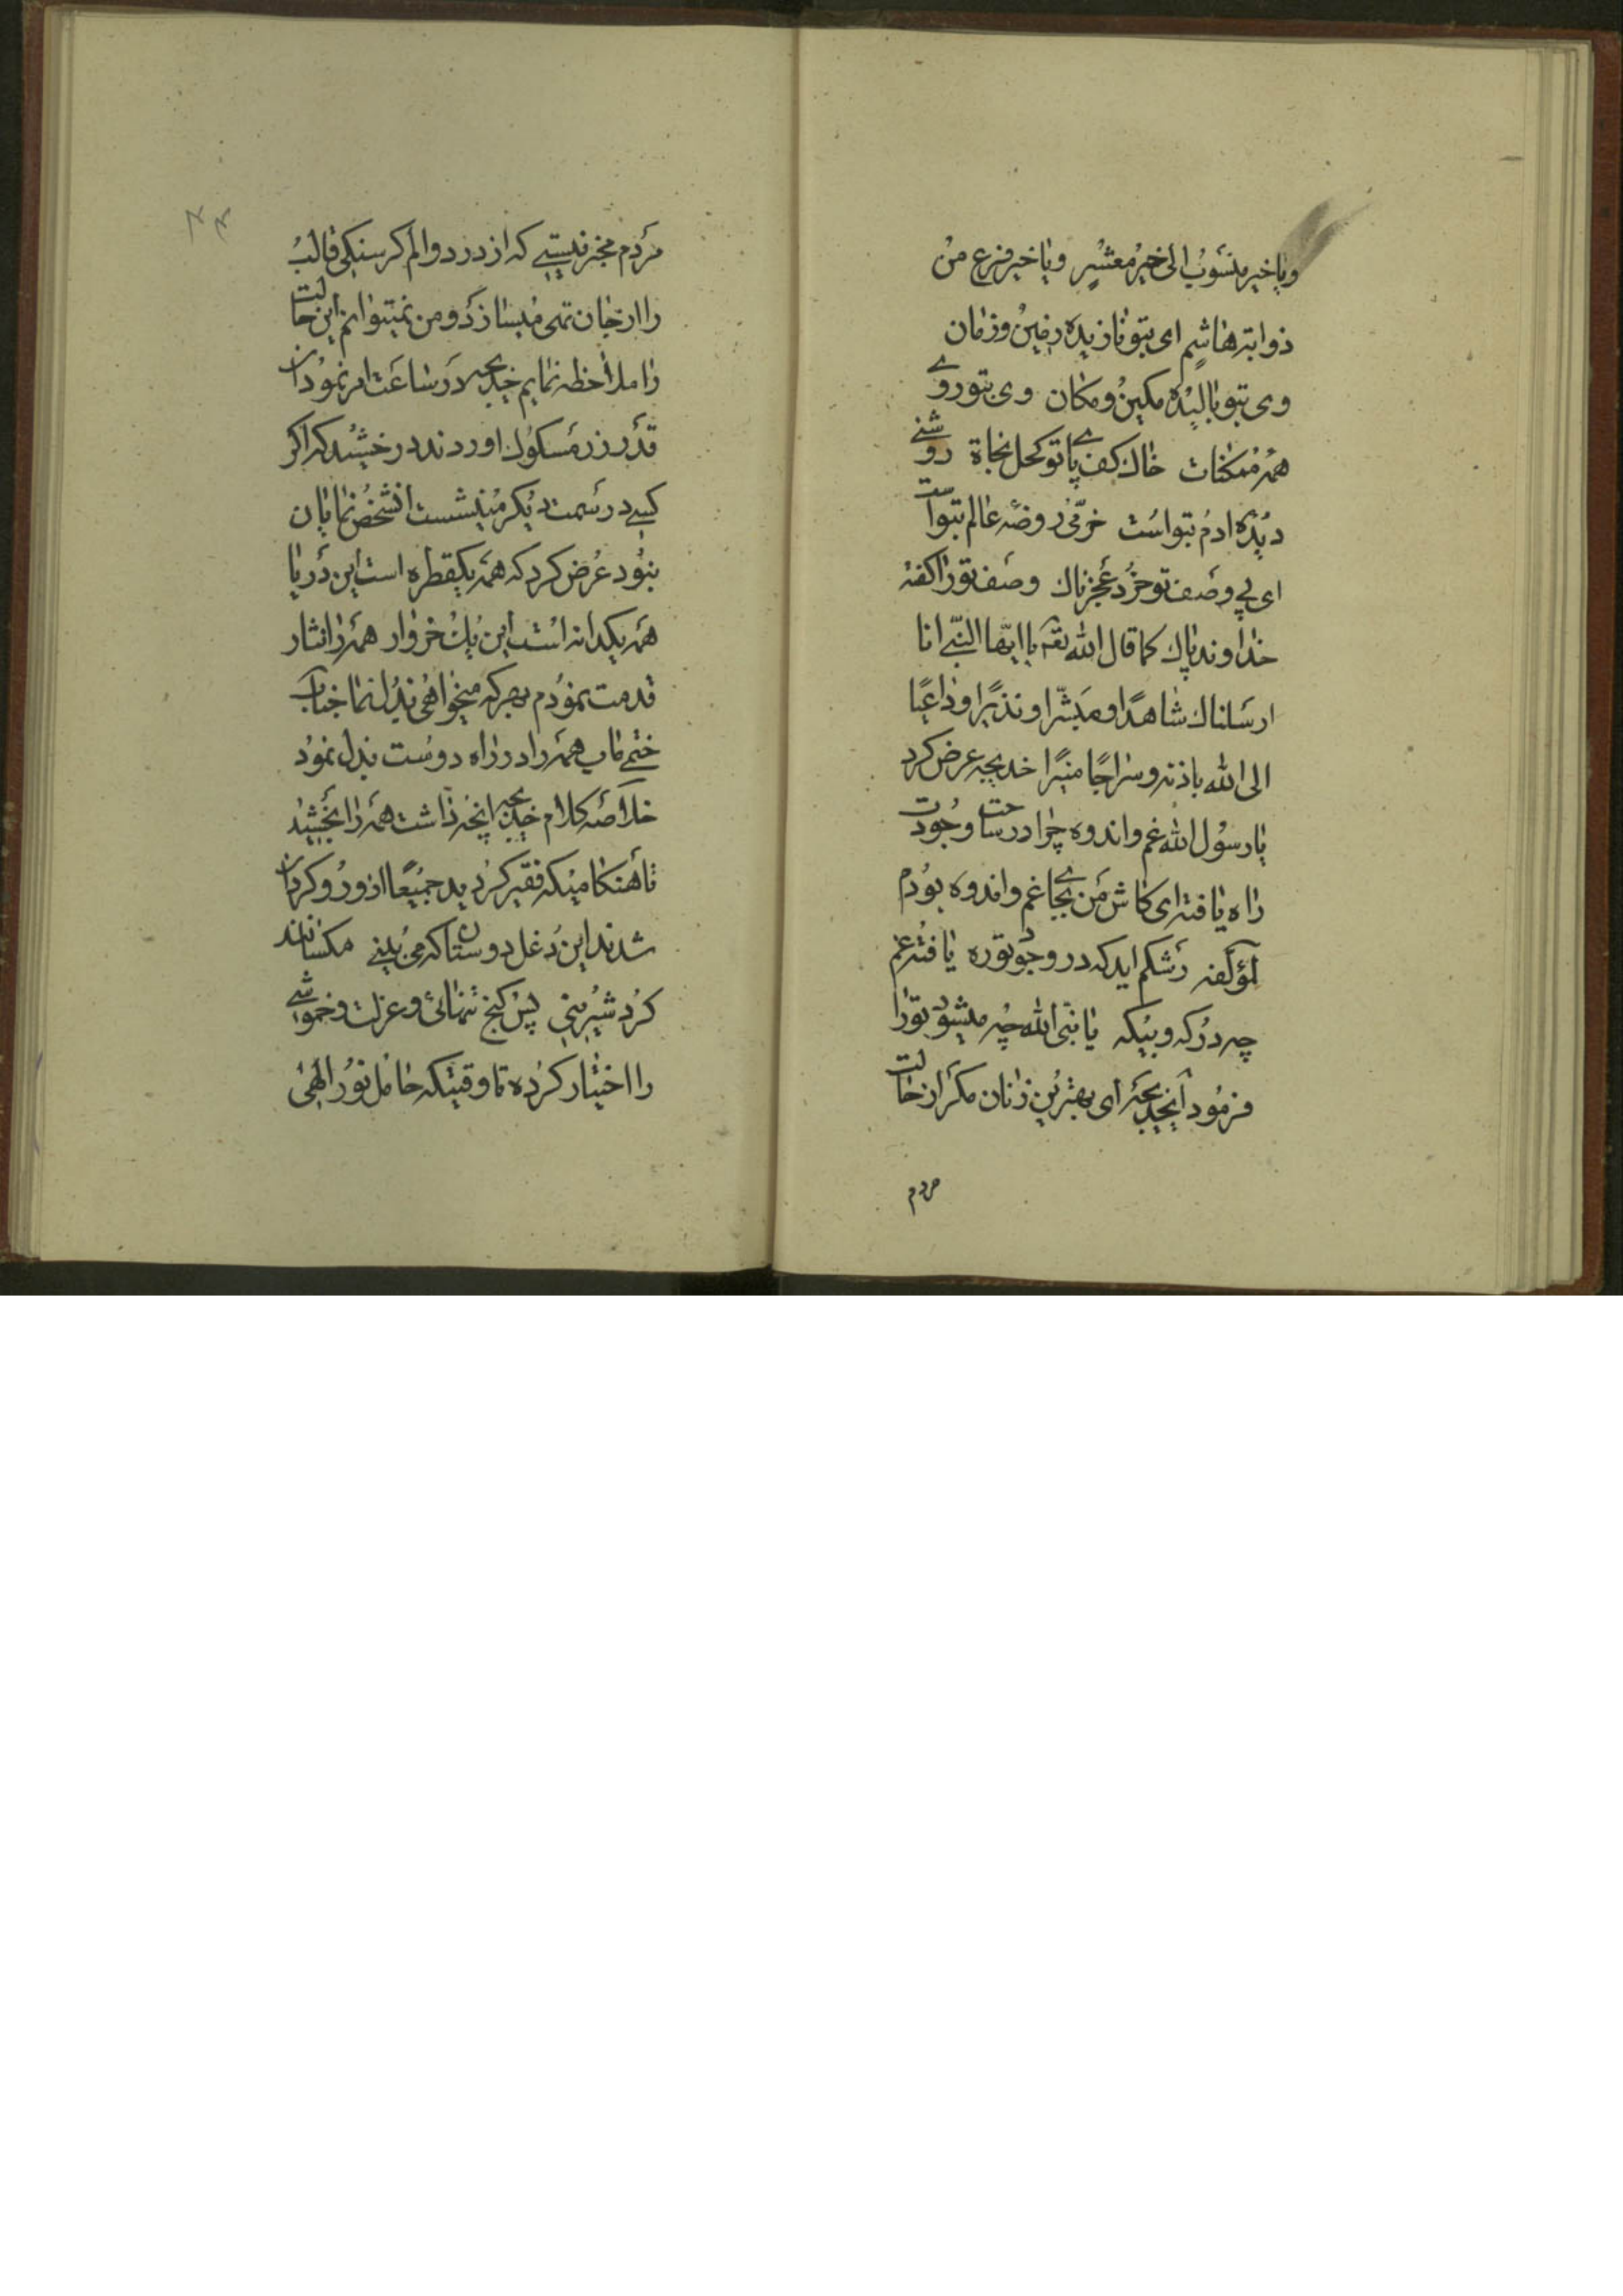 ویا خیر منسوب الی خیر معشر ویا خیر فرع من
ذوابه هاشم ای بتو نازیده زمین وزمان
وی بتو بالیده مکین و مکان وی بتو روی
همه ممکنات خاك كف پای تو کحل نجاة روشنی
دیده ادم بتو است خرّمی روضه عالم بتو است
ای پی وصف تو خرد عجزناك وصف تو را کفته
خداوند پاك كما قال الله تعه یا ایّها النّبی انا
ارسلناك شاهدًا و مبشّرا و نذیرًا و داعیًا
الی الله باذنه وسراجًا منیرًا خدیجه عرض کرد
یا رسول الله غم و اندوه چرا در ساحت وجودت
راه یافته ای کاش من بجای غم و اندوه بودم
لمؤلفه رشکم اید که در وجود تو ره یافته غم
چه درکه و بیکه یا نبی الله چه میشود تو را
فرمود ایخدیجه ای بهترین زنان مکر از حالت
مردم
۴۴
مردم مخبر نیستی که از درد و الم کرسنکی قالب
را از جان تهی میسازند و من نمیتوانم این حالت
را ملاحظه نمایم خدیجه در ساعت امر نمود ان
قدر زر مسکوك اوردند در خشید که اکر
کسی در سمت دیکر مینشست انشخص نمایان
نبود عرض کرد که همه یکقطره است این دریا
همه یکدانه است این یك خروار همه را نثار
قدمت نمودم بهر که میخواهی بذل نما جناب
ختمی ماب همه را در راه دوست بذل نمود
خلاصه کلام خدیجه انچه داشت همه را بخشید
تا هنکامیکه فقیر کردید جمیعا از و رو کردان
شدند این دغل دوستان که می بینی مکسانند
کرد شیرینی پس کنج تنهائی و عزلت و خموشی
را اختیار کرده تا وقتیکه حامل نور الهی